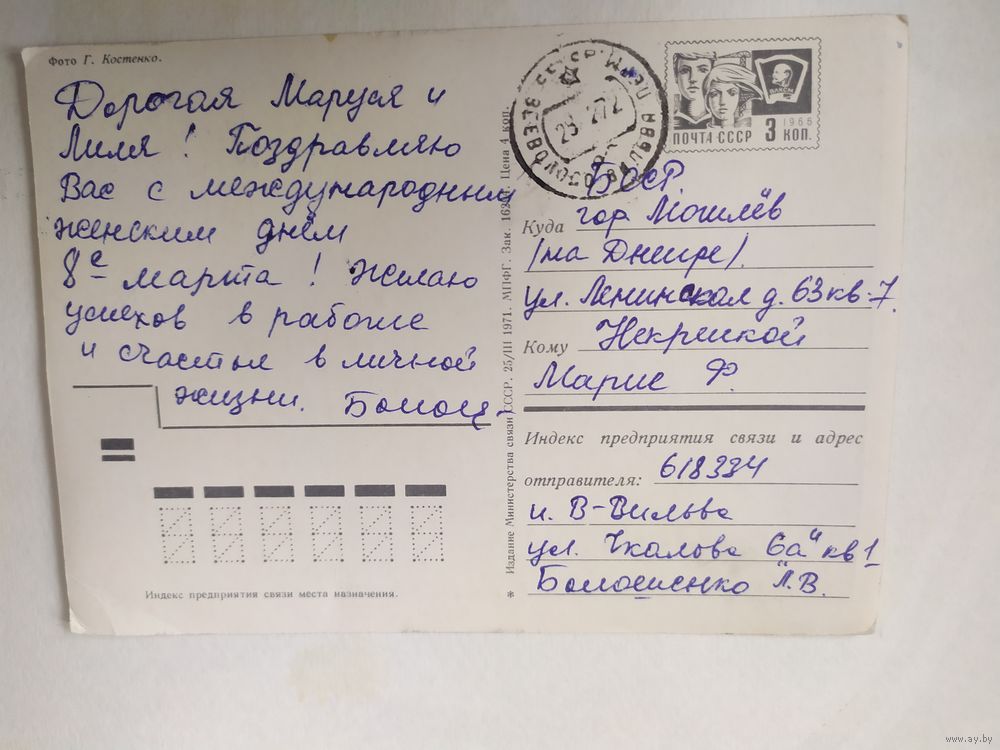 Фото Г. Костенко.
Дорогая Маруся и
Лиля! Поздравляю
Вас с международным
женским днём
8е марта! Желаю
успехов в работе
и счастья в личной
жизни.
Индекс предприятия связи места назначения.
Издание Министерства связи СССР. 25/III 1971. МПФГ. Зак. Цена 4 коп.
ПОЧТА СССР 3 КОП.
1966
ВЛКСМ
БССР.
Куда гор Могилёв
(на Днепре).
ул. Ленинская д. 63 кв-7.
Кому
Марие Ф.
Индекс предприятия связи и адрес
отправителя: 618334
п. В-Вильва
ул. Чкалова 6а" кв 1
Л.В.
www.ay.by